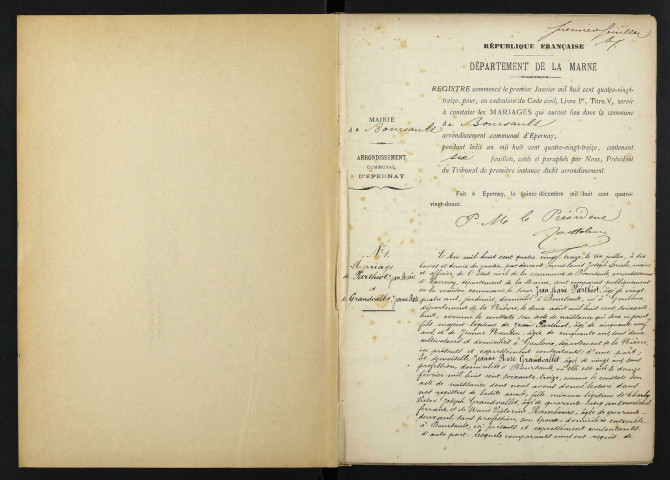 premier feuillet
RÉPUBLIQUE FRANÇAISE
DÉPARTEMENT DE LA MARNE
REGISTRE commencé le premier Janvier mil huit cent quatre-vingt-
treize, pour, en exécution du Code civil, Livre Ier, Titre V, servir
à constater les MARIAGES qui auront lieu dans la commune
de Boursault
arrondissement communal d'Epernay,
pendant ledit an mil huit cent quatre-vingt-treize, contenant
six feuillets, cotés et paraphés par Nous, Président
du Tribunal de première instance dudit arrondissement.
MAIRIE
de Boursault
ARRONDISSEMENT
COMMUNAL
D'EPERNAY
Fait à Epernay, le quinze décembre mil huit cent quatre-
vingt-douze.
P. M. le Président
N° 1.
Mariage
de Parthiot Jean Marie
et
de Grandvallet Jeanne Rose
L'an mil huit cent quatre vingt treize, le dix juillet, à dix
heures et demie du matin, par devant nous Louis Joseph, maire
et officier de l'état civil de la commune de Boursault, arrondissement
d'Epernay, département de la Marne, sont comparus publiquement
en la maison commune le sieur Jean Marie Parthiot, âgé de vingt
quatre ans, jardinier, domicilié à Boursault, né à Gouloux
département de la Nièvre, le deux août mil huit cent soixante
huit, comme le constate son acte de naissance
fils majeur légitime de Jean Parthiot, âgé de cinquante neuf
ans, et de Jeanne, âgée de cinquante ans, tous deux
cultivateurs et domiciliés à Gouloux, département de la Nièvre,
ici présents et expressément consentants d'une part,
Et demoiselle Jeanne Rose Grandvallet, âgée de vingt ans, sans
profession, domiciliée à Boursault, où elle est née le douze
février mil huit cent soixante treize, comme le constate son
acte de naissance dont nous avons donné lecture dans
nos registres de ladite année, fille mineure légitime de Charles
Victor Joseph Grandvallet, âgé de quarante cinq ans, maréchal
ferrant et de Marie Victorine, âgée de quarante-
deux ans, sans profession, son épouse, domiciliés ensemble
à Boursault, ici présents et expressément consentants
d'autre part. Lesquels comparants nous ont requis de